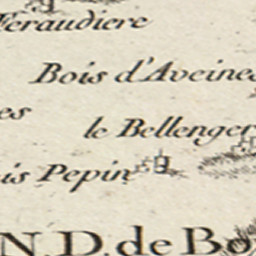 Feraudiere
Bois d'Aveines
es
le Bellenger
is Pepin
N.D. de Bo